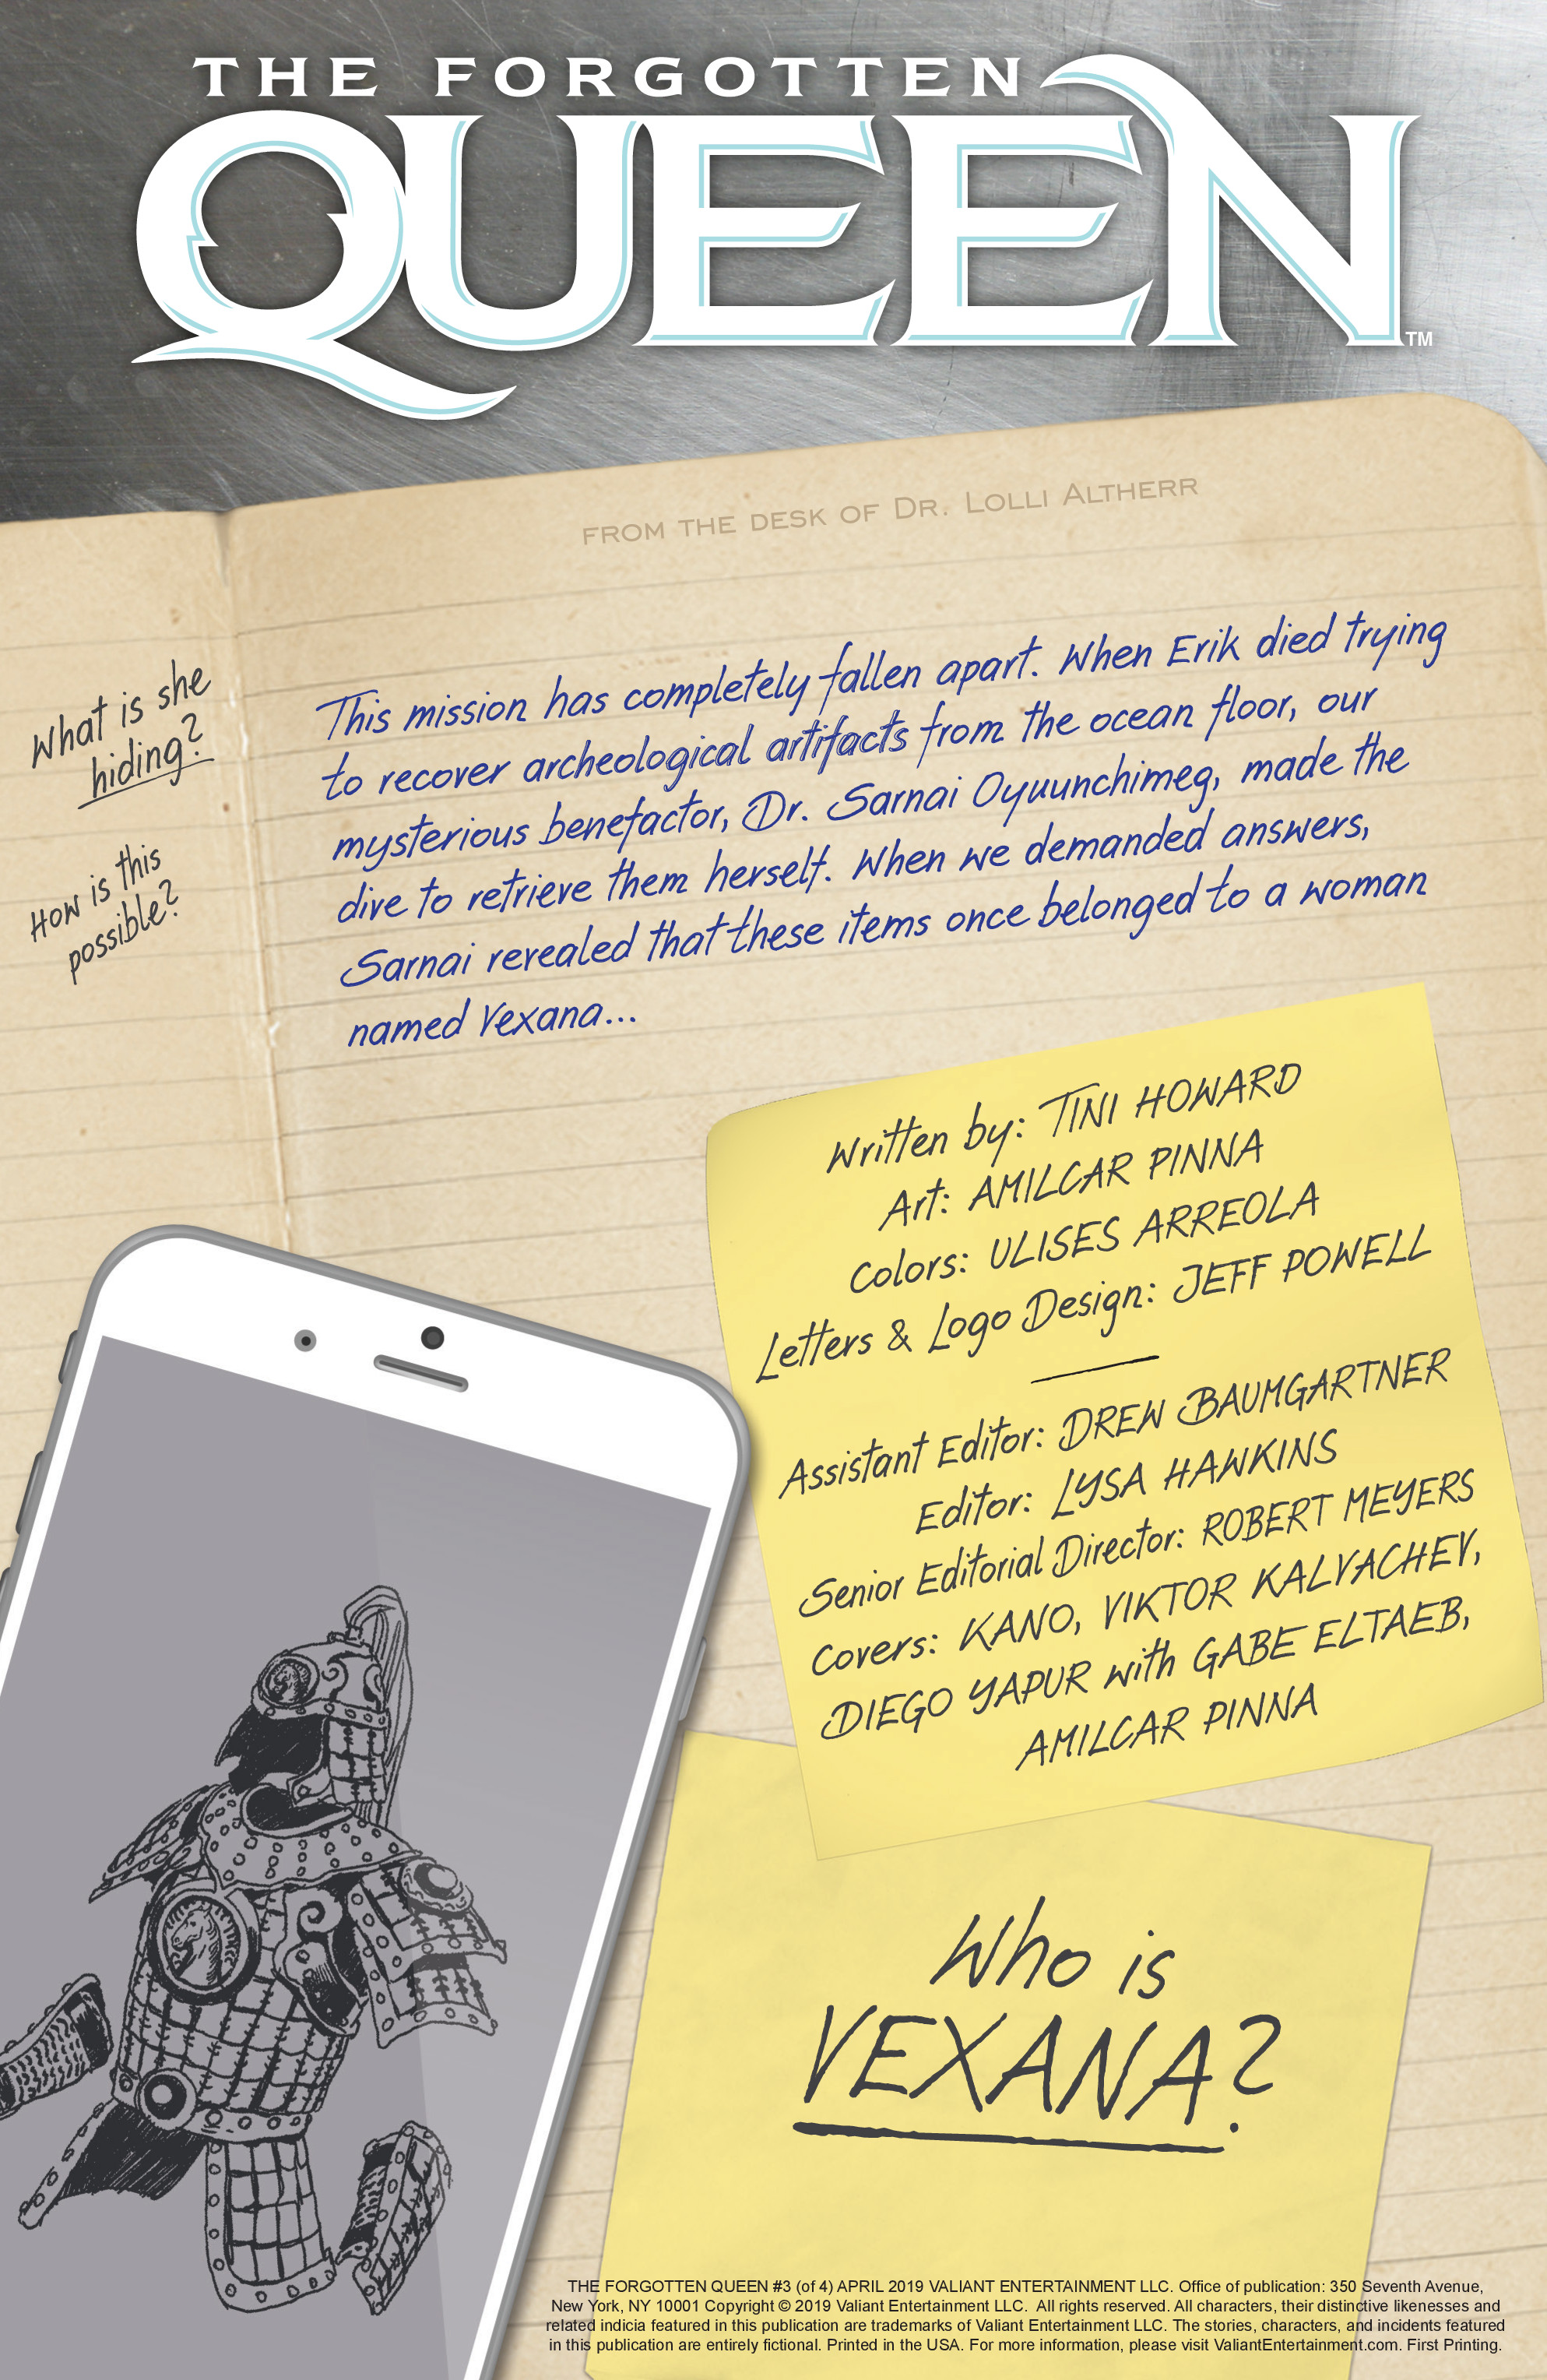 THE FORGOTTEN
QUEEN™
FROM THE DESK OF DR. LOLLI ALTHERR
What is she
hiding?
How is this
possible?
This mission has completely fallen apart. When Erik died trying
to recover archeological artifacts from the ocean floor, our
mysterious benefactor, Dr. Sarnai Oyuunchimeg, made the
dive to retrieve them herself. When we demanded answers,
Sarnai revealed that these items once belonged to a woman
named Vexana...
Written by: TINI HOWARD
Art: AMILCAR PINNA
Colors: ULISES ARREOLA
Letters & Logo Design: JEFF POWELL
Assistant Editor: DREW BAUMGARTNER
Editor: LYSA HAWKINS
Senior Editorial Director: ROBERT MEYERS
Covers: KANO, VIKTOR KALVACHEV,
DIEGO YAPUR with GABE ELTAEB,
AMILCAR PINNA
Who is
VEXANA?
THE FORGOTTEN QUEEN #3 (of 4) APRIL 2019 VALIANT ENTERTAINMENT LLC. Office of publication: 350 Seventh Avenue,
New York, NY 10001 Copyright © 2019 Valiant Entertainment LLC. All rights reserved. All characters, their distinctive likenesses and
related indicia featured in this publication are trademarks of Valiant Entertainment LLC. The stories, characters, and incidents featured
in this publication are entirely fictional. Printed in the USA. For more information, please visit ValiantEntertainment.com. First Printing.